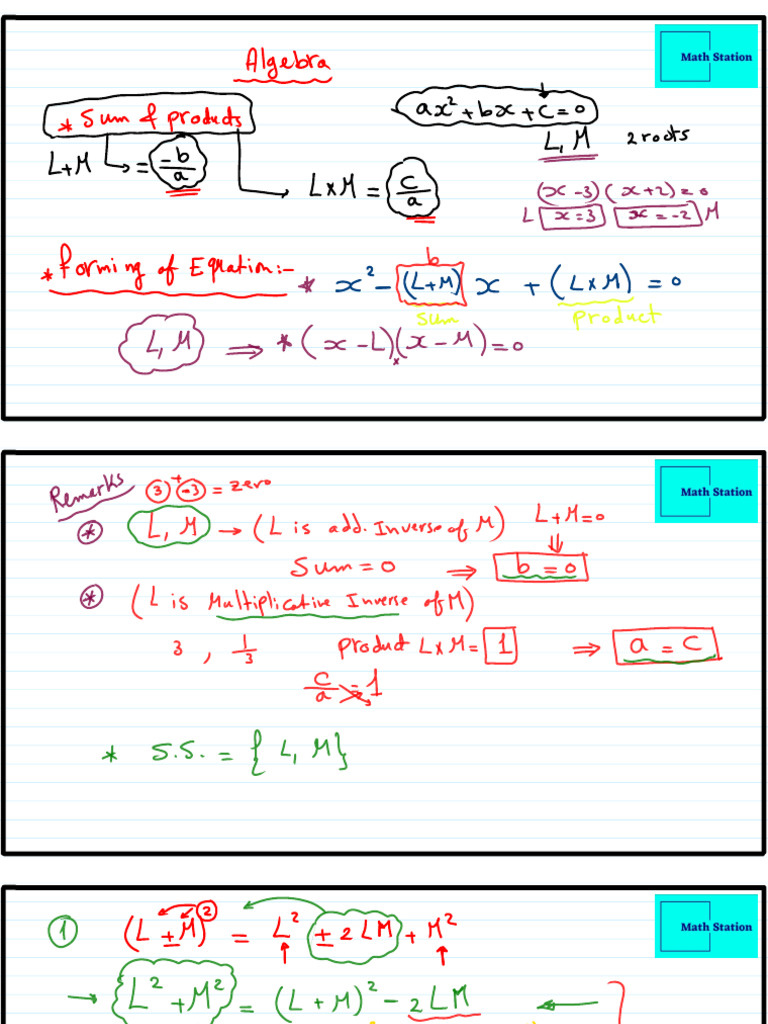 Algebra
Math Station
* Sum & products
ax² + bx + c = 0
L, M 2 roots
L+M → = -b/a
L×M = c/a
(x-3)(x+2)=0
L x=3 x=-2 M
* Forming of Equation:-
* x² - (L+M) x + (L×M) = 0
b
sum product
L, M ⇒ * (x-L)(x-M)=0
Remarks
3 + -3 = zero
Math Station
* L, M → (L is add. Inverse of M) L+M=0
⇓
Sum = 0 ⇒ b = 0
* (L is Multiplicative Inverse of M)
3 , 1/3 product L×M = 1 ⇒ a = c
c/a = 1
* S.S. = {L, M}
Math Station
① (L ± M)² = L² ± 2LM + M²
→ L² + M² = (L+M)² - 2LM ←